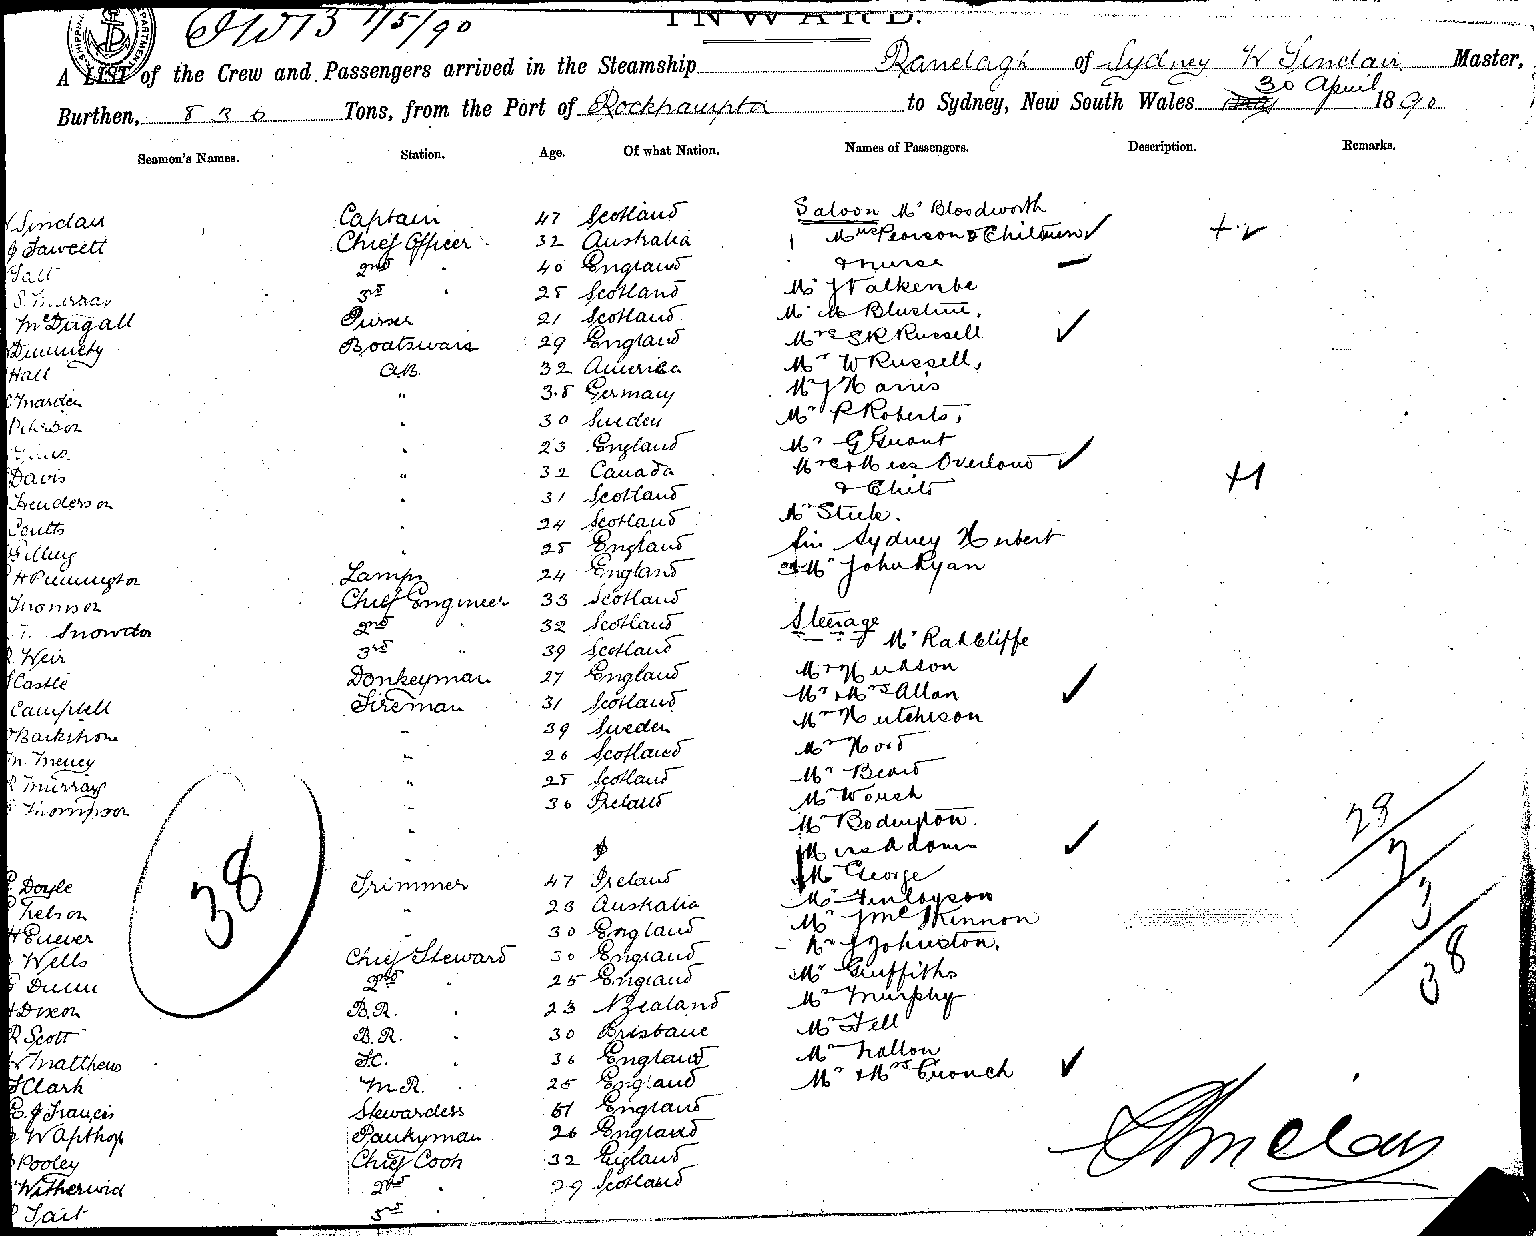 INWARD.
SHIPPING DEPARTMENT
7/5/90
A LIST of the Crew and Passengers arrived in the Steamship Ranelagh of Sydney W Sinclair Master,
Burthen, 836 Tons, from the Port of Rockhampton to Sydney, New South Wales 30 April 1890
Seamen's Names. Station. Age. Of what Nation. Names of Passengers. Description. Remarks.
Sinclair Captain 47 Scotland Saloon Mr Bloodworth
J Fawcett Chief Officer 32 Australia Mrs Pearson & Children
2nd " 40 England & nurse
S. Murray 3rd " 25 Scotland Mr J Valkenbe
McDugall Purser 21 Scotland Mr
Boatswain 29 England Mrs S R Russell
Hall A.B. 32 America Mr W Russell,
Marden " 38 Germany Mr J Harris
Peterson " 30 Sweden Mr R Roberts,
" 23 England Mr G Grant
Davis " 32 Canada Mrs & Miss Overland
Henderson " 31 Scotland & Child
Coutts " 24 Scotland Mr
" 25 England Sir Sydney Herbert
H Pennington Lamps 24 England Mr John Ryan
Thomson Chief Engineer 33 Scotland
Snowdon 2nd 32 Scotland Steerage
Weir 3rd " 39 Scotland Mr Radcliffe
Castle Donkeyman 27 England Mr Hudson
Campbell Fireman 31 Scotland Mr & Mrs Allan
" 39 Sweden Mr Hutchison
" 26 Scotland Mr
R Murray " 25 Scotland Mr
Thompson " 36 Ireland Mr
" Mr Bodington.
Miss Adams
Doyle Trimmer 47 Ireland Mr George
Nelson " 23 Australia Mr Finlayson
" 30 England Mr J McKinnon
Wells Chief Steward 30 England Mr J Johnston,
Dunn 2nd " 25 England Mr Griffiths
Dixon B.R. " 23 N Zealand Mr Murphy
R Scott B.R. " 30 Brisbane Mr Fell
W Matthews F.C. " 36 England Mr Nallon
Clark M.R. " 25 England Mr & Mrs Crouch
E. J Francis Stewardess 51 England
W Apthorp Pantryman 26 England
Pooley Chief Cook 32 England
2nd " 29 Scotland
Tait 3rd "
38
29
7
3
38
Sinclair